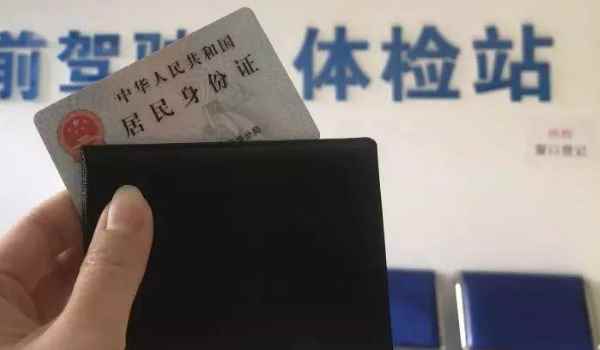 前驾驶 体检站
中华人民共和国
居民身份证
窗口登记